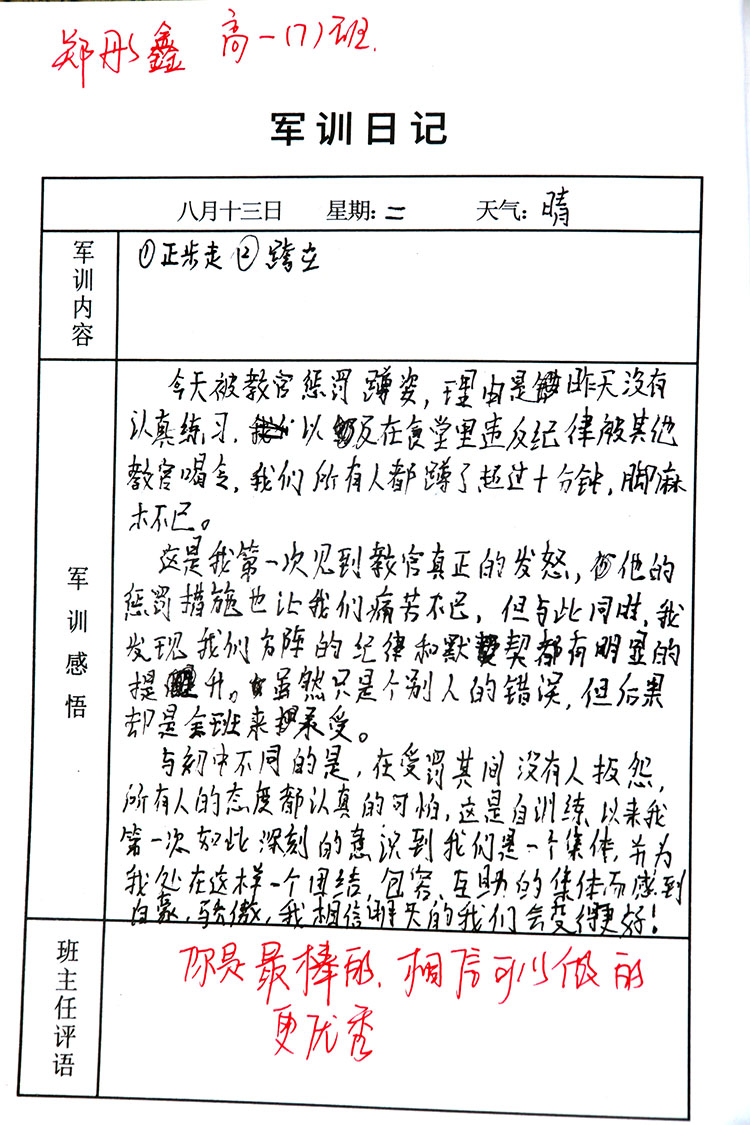 郑彤鑫 高一(7)班.
军训日记
八月十三日 星期:二 天气:晴
军训内容
①正步走②跨立
军训感悟
今天被教官惩罚蹲姿,理由是昨天没有
认真练习.以及在食堂里违反纪律被其他
教官喝令,我们所有人都蹲了超过十分钟,脚麻
木不已。
这是我第一次见到教官真正的发怒,他的
惩罚措施也让我们痛苦不已,但与此同时,我
发现我们方阵的纪律和默契都有明显的
提升。虽然只是个别人的错误,但后果
却是全班来承受。
与初中不同的是,在受罚其间没有人报怨,
所有人的态度都认真的可怕,这是自训练以来我
第一次如此深刻的意识到我们是一个集体,并为
我处在这样一个团结,包容,互助的集体而感到
自豪,骄傲,我相信明天的我们会变得更好!
班主任评语
你是最棒的.相信可以做的
更优秀